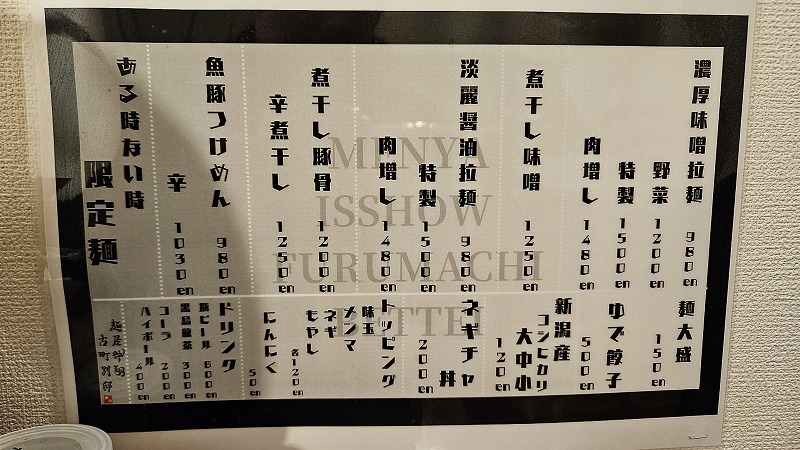 濃厚味噌拉麺 980en
野菜 1200en
特製 1500en
肉増し 1480en
煮干し味噌 1250en
淡麗醤油拉麺 980en
特製 1500en
肉増し 1480en
煮干し豚骨 1200en
辛煮干し 1250en
魚豚つけめん 980en
辛 1030en
ある時ない時
限定麺
麺大盛 150en
ゆで餃子 500en
新潟産
コシヒカリ
大中小 120en
ネギチャ
丼 200en
トッピング
味玉
メンマ
ネギ
もやし 各120en
にんにく 50en
ドリンク
瓶ビール 600en
黒烏龍茶 300en
コーラ 200en
ハイボール 400en
古町別邸
MENYA
ISSHOW
FURUMACHI
BETTEI